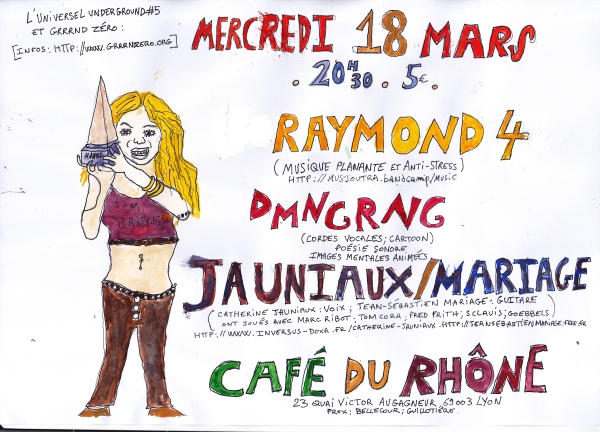 L'UNIVERSEL UNDERGROUND#5
ET GRRRND ZÉRO:
[INFOS: HTTP://WWW.GRRRNDZERO.ORG]
MERCREDI 18 MARS
. 20H30 . 5€.
RAYMOND 4
(MUSIQUE PLANANTE ET ANTI-STRESS)
HTTP://MUSJOUTRA.bandcamp/MUSIC
DMNGRNG
(CORDES VOCALES; CARTOON)
POÉSIE SONORE
IMAGES MENTALES ANIMÉES
JAUNIAUX/MARIAGE
(CATHERINE JAUNIAUX: VOIX; JEAN-SÉBASTIEN MARIAGE: GUITARE)
ONT JOUÉS AVEC MARC RIBOT. TOM CORA, FRED FRITH, SCLAVIS; GOEBBELS)
HTTP://WWW.INVERSUS-DOXA.FR/CATHERINE-JAUNIAUX.HTTP://JEANSEBASTIENMARIAGE.FREE.FR
CAFÉ DU RHÔNE
23 QUAI VICTOR AUGAGNEUR 69003 LYON
PROX: BELLECOUR; GUILLOTIÈRE.